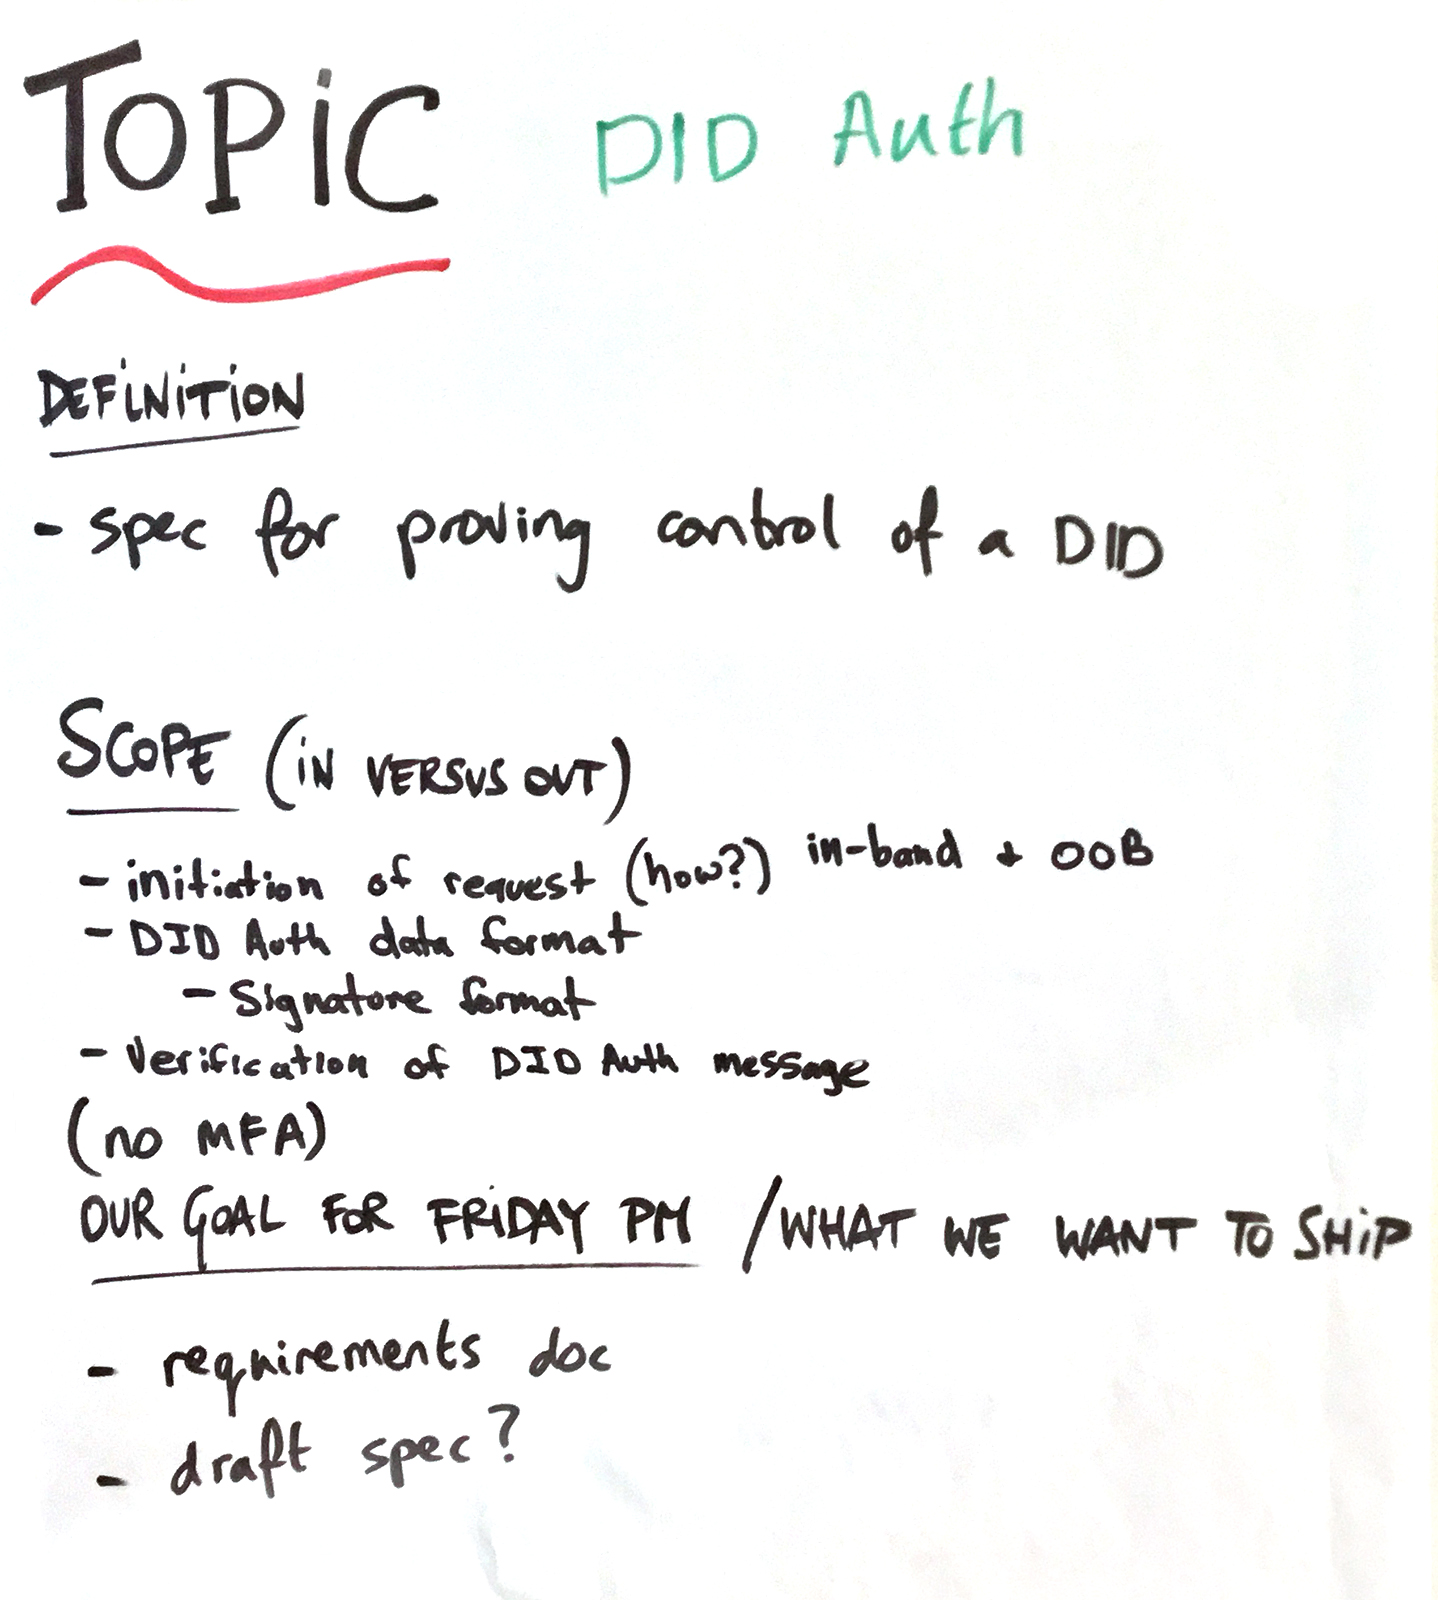 TOPiC DID Auth
DEFiNiTiON
- spec for proving control of a DID
SCOPE (iN VERSUS OUT)
- initiation of request (how?) in-band + OOB
- DID Auth data format
- Signature format
- Verification of DID Auth message
(no MFA)
OUR GOAL FOR FRiDAY PM / WHAT WE WANT TO SHiP
- requirements doc
- draft spec?